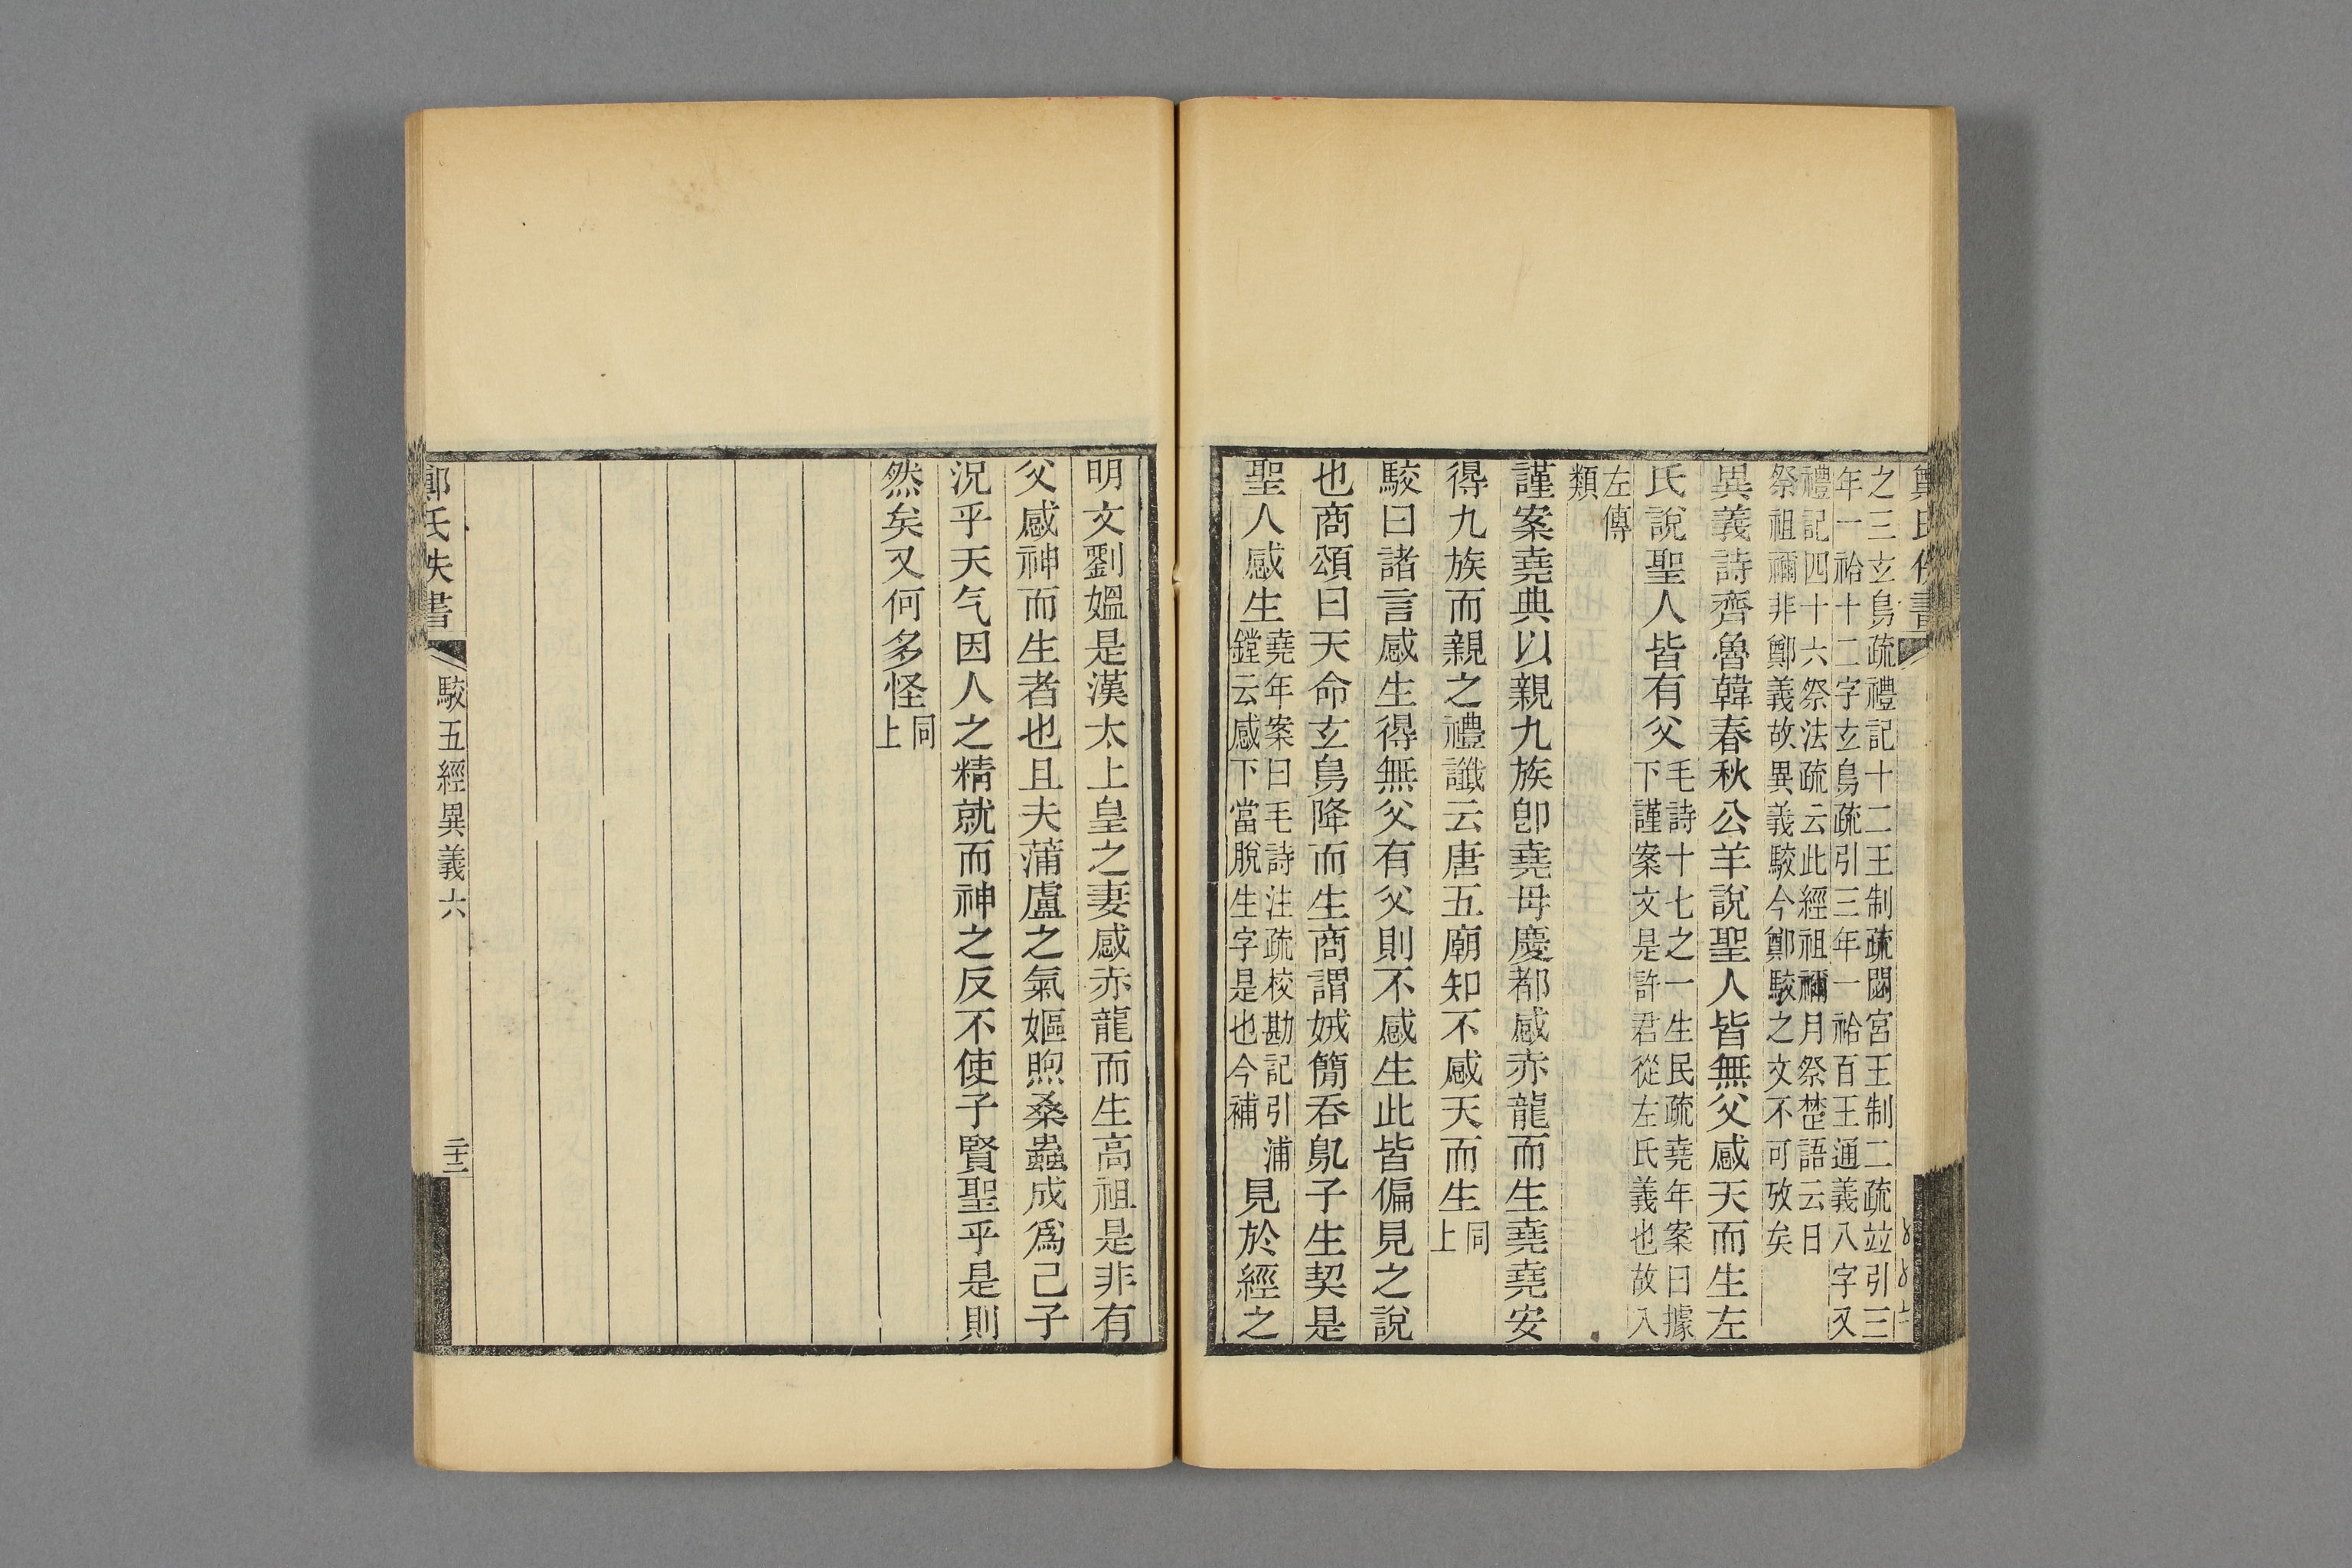 之三玄鳥疏禮記十二王制疏閟宮王制二疏竝引三
年一祫十二字玄鳥疏引三年一祫百王通義八字又
禮記四十六祭法疏云此經祖禰月祭楚語云日
祭祖禰非鄭義故異義駮今鄭駮之文不可攷矣
異義詩齊魯韓春秋公羊說聖人皆無父感天而生左
氏說聖人皆有父毛詩十七之一生民疏堯年案曰據
下謹案文是許君從左氏義也故入
左傳
類
謹案堯典以親九族卽堯母慶都感赤龍而生堯堯安
得九族而親之禮讖云唐五廟知不感天而生同上
駮曰諸言感生得無父有父則不感生此皆偏見之說
也商頌曰天命玄鳥降而生商謂娀簡吞鳦子生契是
聖人感生堯年案曰毛詩注疏校勘記引浦
鏜云感下當脫生字是也今補
見於經之
明文劉媼是漢太上皇之妻感赤龍而生高祖是非有
父感神而生者也且夫蒲盧之氣嫗煦桑蟲成爲己子
況乎天气因人之精就而神之反不使子賢聖乎是則
然矣又何多怪同上
鄭氏佚書
駮五經異義六
二十二